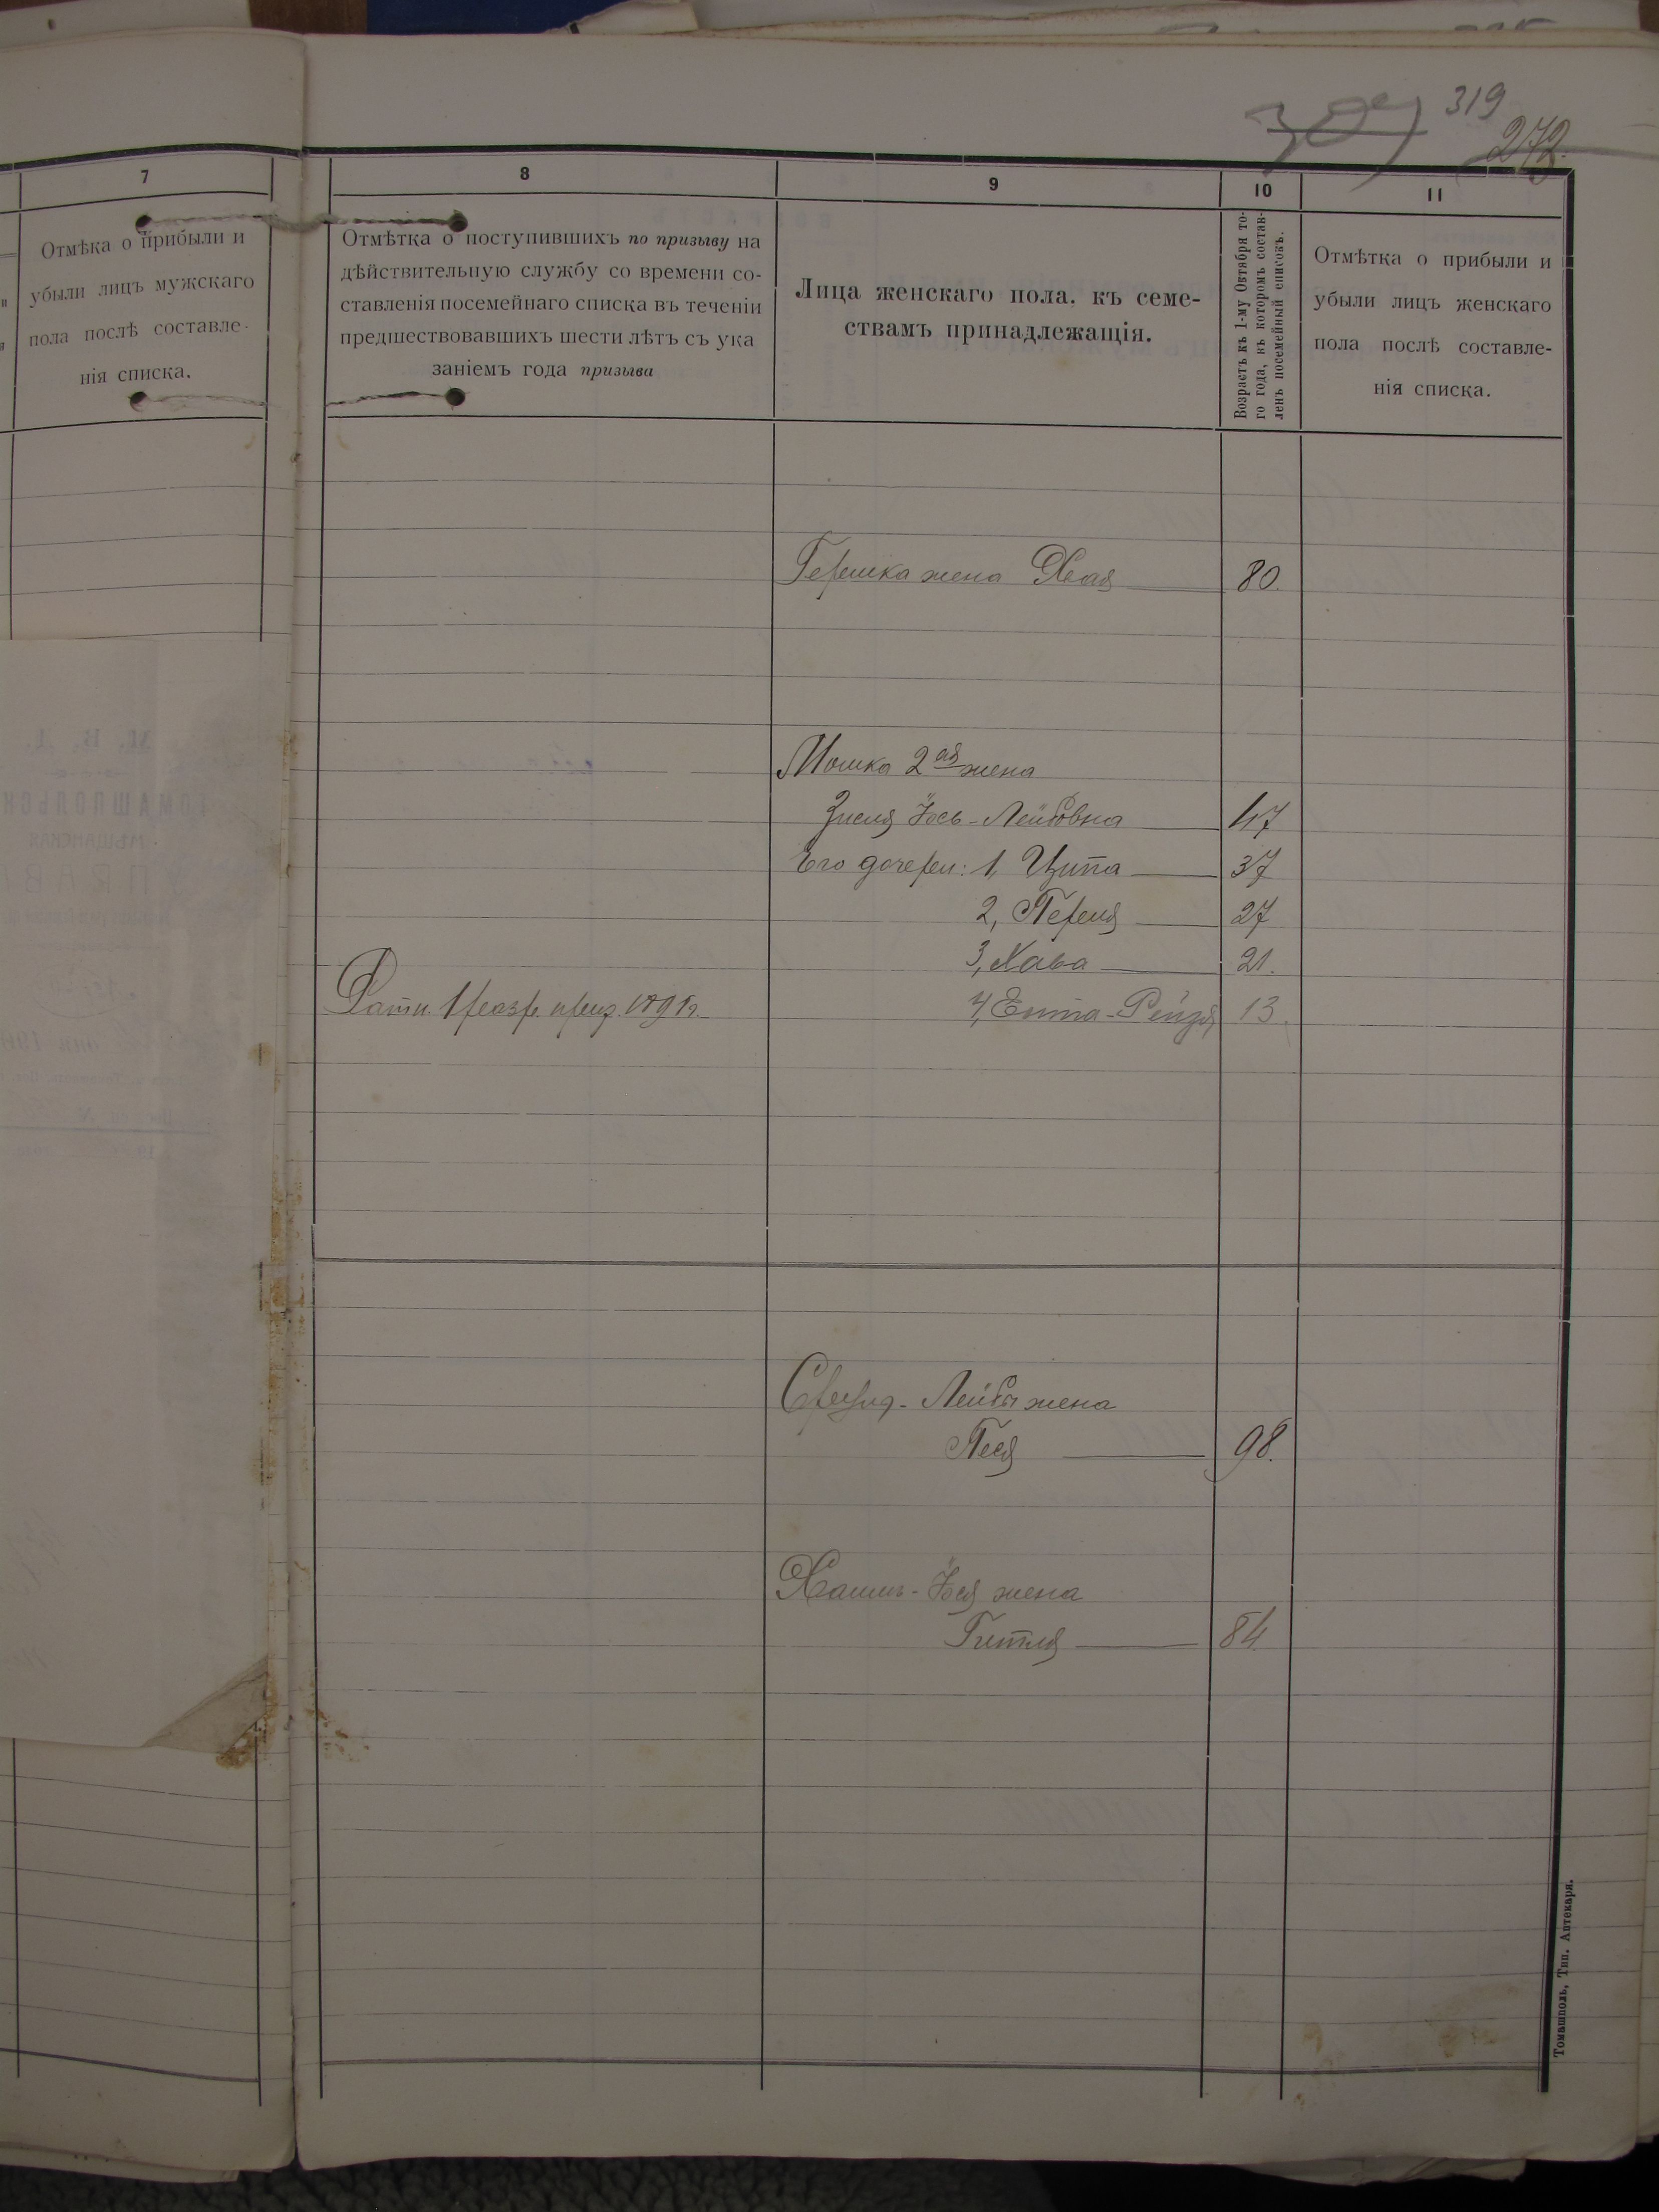 319
272.
7
8
9
10
11
Отмѣка о прибыли и
убыли лицъ мужскаго
пола послѣ составле-
нія списка.
Отмѣтка о поступившихъ по призыву на
дѣйствительную службу со времени со-
ставленія посемейнаго списка въ теченіи
предшествовавшихъ шести лѣтъ съ ука
заніемъ года призыва
Лица женскаго пола, къ семе-
ствамъ принадлежащія.
Возрастъ къ 1-му Октября то-
го года, къ которомъ состав-
ленъ посемейный списокъ.
Отмѣтка о прибыли и
убыли лицъ женскаго
пола послѣ составле-
нія списка.
Гершка жена Хая 80.
Мошка 2ая жена
Зисля Іось-Лейбовна 47
Его дочери: 1, Ципа 37
2, Перля 27
3, Хава 21.
Ратн. 1 разр. приз. 1891г. 4, Ента-Рейзя 13.
Сруль-Лейбы жена
Песя 98.
Хаимъ-Іося жена
Гитля 84.
Томашполь, Тип. Аптекаря.